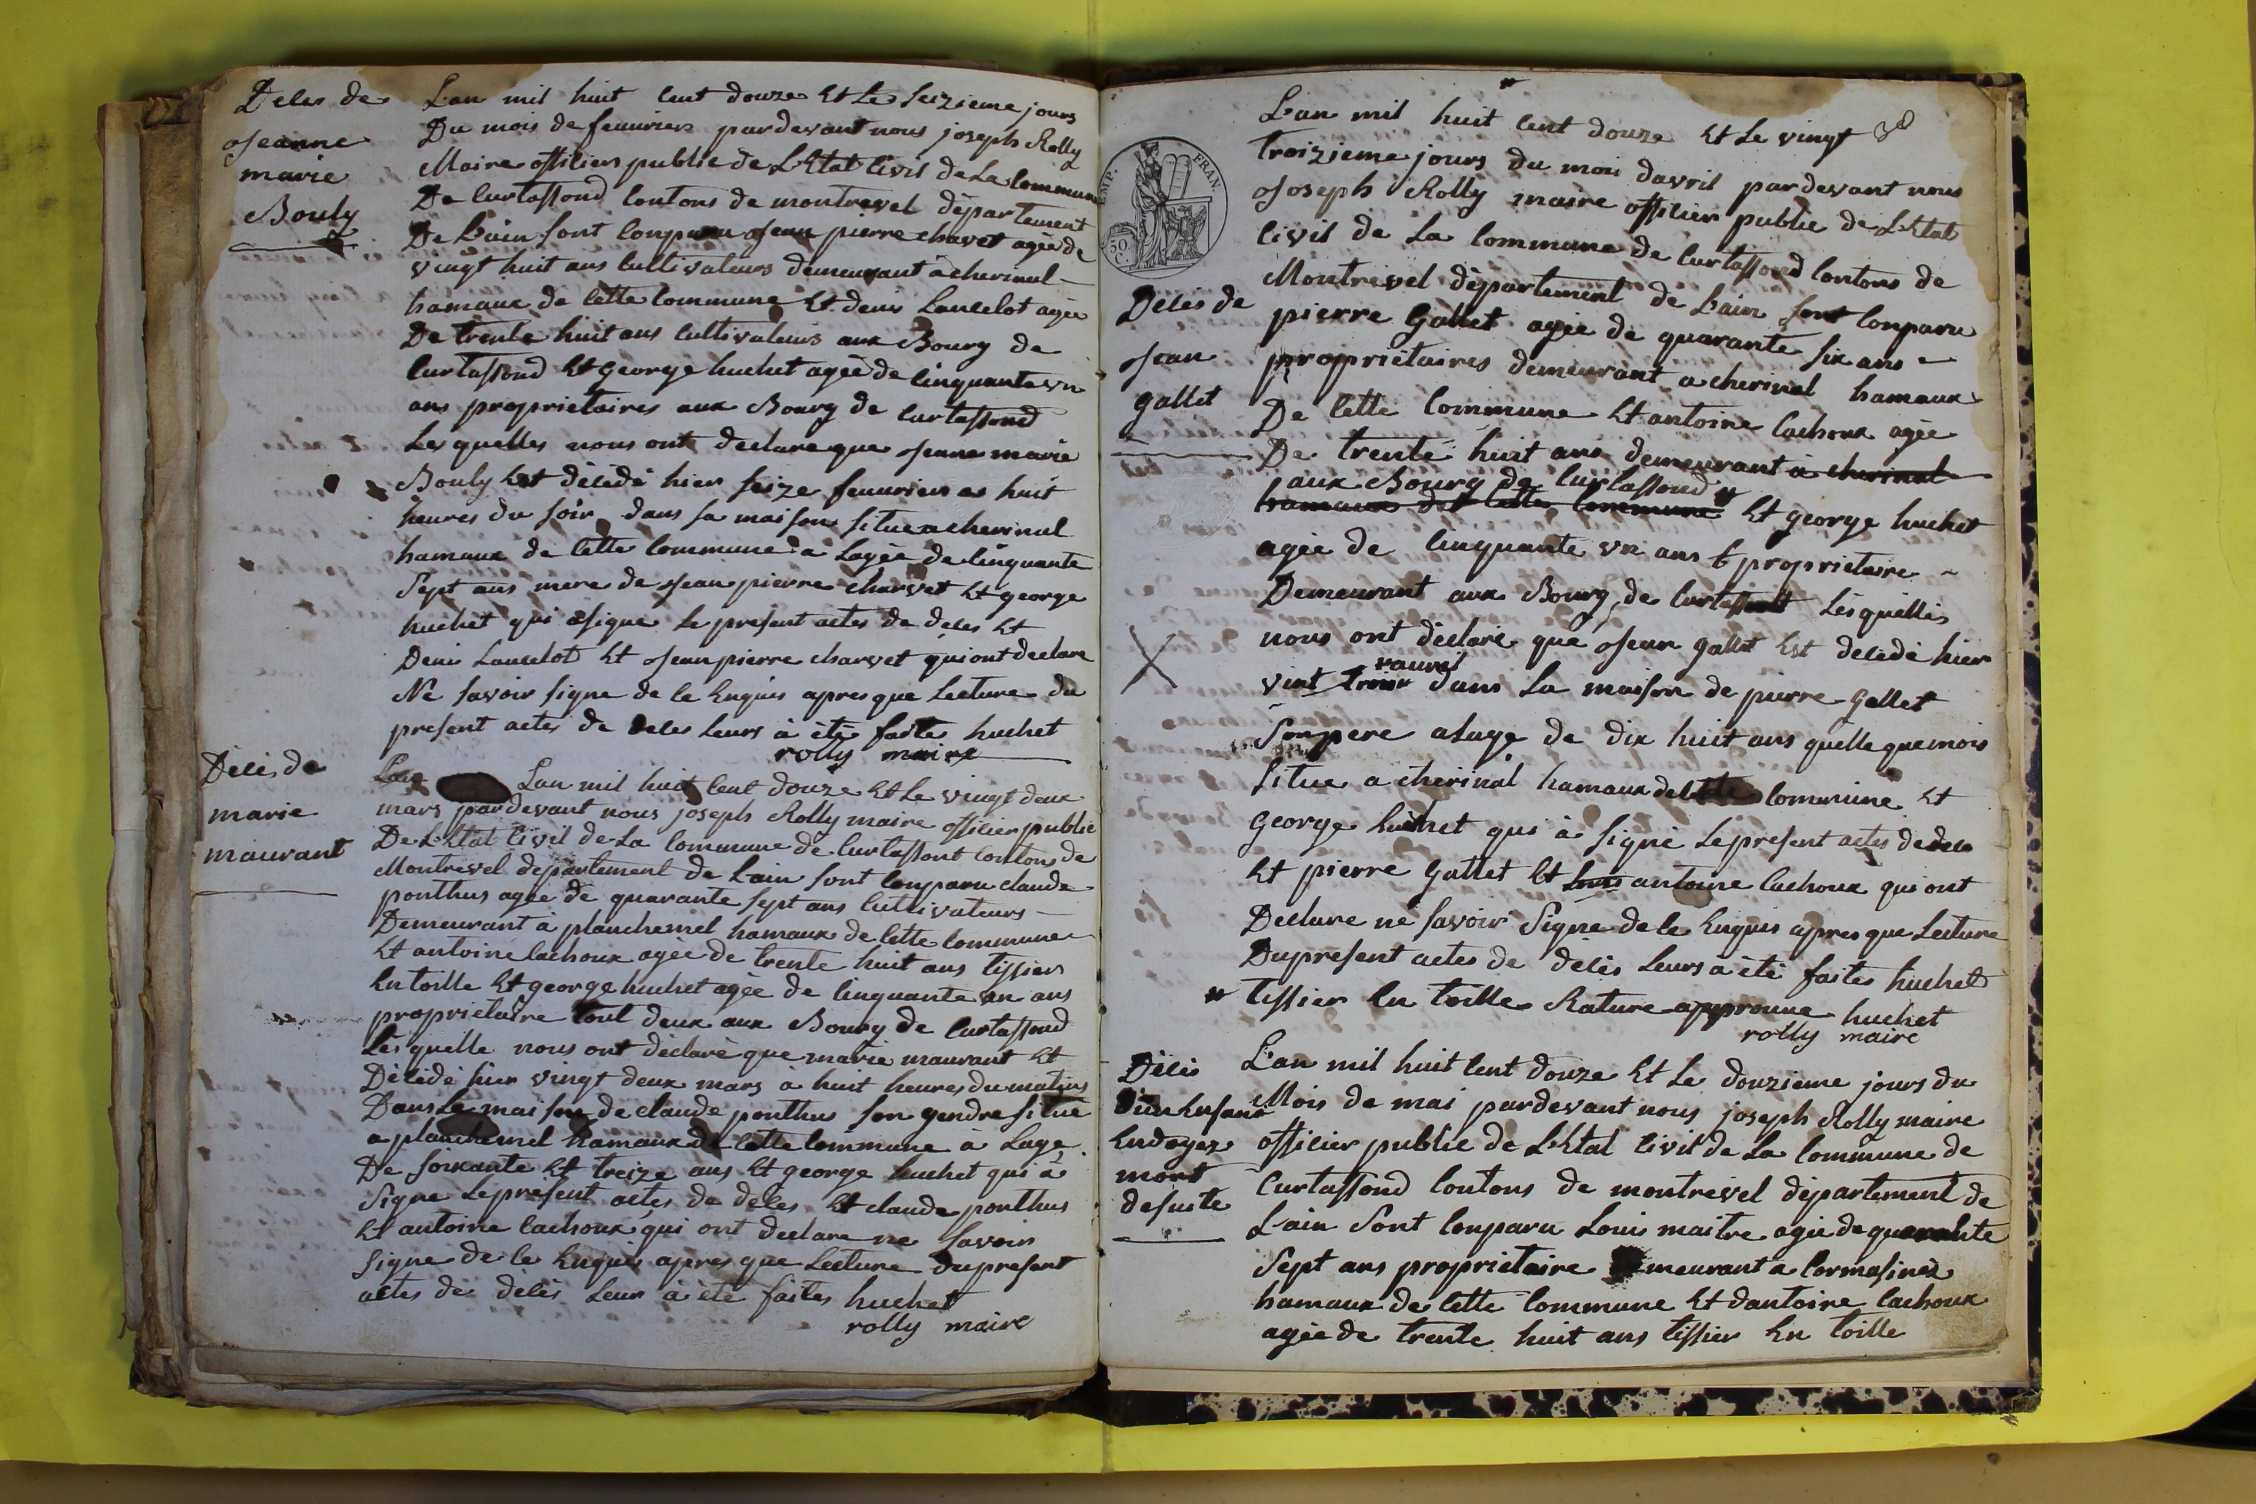 Deles de
Jeanne
marie
Bouly
L'an mil huit cent douze Et Le seizieme jours
Du mois de feuurier pardevant nous joseph Rolly
Maire officier public de L'Etat Civil de La Commune
De Curtassond Contons de montrevel département
De L'ain sont Conparu Jean pierre chavet agee de
vingt huit ans Cultivateurs demeurant a cherinal
hamaux de Cette Commune Et denis Lancelot agee
De trente huit ans Cultivateurs aux Bourg de
Curtassond Et George huchet agee de Cinquante un
ans proprietaires aux Bourg de Curtassond
Les quelles nous ont declare que Jeane marie
Bouly Est décédé hier seize feuurier a huit
heures du soir dans sa maison situe a cherinal
hamaux de Cette Commune à Lagée de Cinquante
Sept ans mere de Jean pierre charvet Et George
huchet qui a signe Le present actes de deces Et
Deni Lancelot Et Jean pierre charvet qui ont declare
Ne savoir signe de Ce Enquis apres que Lecture du
present actes de deces Leurs à été faite huchet
rolly maire
Décés de
marie
maurant
Lan L'an mil huit Cent douze Et Le vingt deux
mars pardevant nous joseph Rolly maire officier public
De L'Etat Civil de La Commune de Curtassont Contons de
Montrevel département de L'ain sont Conparu claude
ponthus agée de quarante sept ans Cultivateurs
Demeurant à planchemel hamaux de Cette Commune
Et antoine Cachoux agée de trente huit ans tissier
En toille Et George huchet agée de Cinquante un ans
proprietaire tout deux aux Bourg de Curtassond
Lés quelle nous ont déclaré que marie maurant Et
Décédé hier vingt deux mars à huit heures du matins
Dans Le maison de claude ponthus son gendre situe
a planchemel hamaux de Cette Commune à Lage
De soixante Et treize ans Et george huchet qui à
Signe Le présent actes de déces Et claude ponthus
Et antoine Cachoux qui ont declare ne savoir
signe de Ce Enquis apres que Lecture Du present
actes de décés Leur à été faites huchet
rolly maire
38
EMP. FRAN.
50 C.
L'an mil huit Cent douze Et Le vingt
Troizieme jours du mois davril pardevant nous
Joseph Rolly maire officier public de L'Etat
Civil de La Commune de Curtassond Contons de
Montrevel département de L'ain sont Conparu
Décés de
Jean
gallet
pierre Gallet agée de quarante six ans
propriétaires demeurant a cherinal hamaux
De Cette Commune Et antoine Cachoux agée
De trente huit ans demeurant a cherinal
aux Bourg de Curtassond
hamaux de Cette Commune Et george huchet
agée de Cinquante un ans & proprietaire
Demeurant aux Bourg de Curtassont Lesquelles
nous ont déclaré que Jean gallet Est décédé hier
vint trois dans La maison de pierre Gallet
Son pere a Lage de dix huit ans quelle que mois
situe a cherinal hamaux de Cette Commune Et
George huchet qui à signé Le present actes de deces
Et pierre Gallet Et antoine Cachoux qui ont
Declare ne savoir Signe de Ce Enquis apres que Lecture
Du present actes de décés Leurs à été faites huchet
tissier En toille Rature approuue huchet
rolly maire
Décés
D'un Enfant
Endoyez
mort
de suite
L'an mil huit Cent douze Et Le douzieme jours du
Mois de mai pardevant nous joseph Rolly maire
officier public de L'Etat Civil de La Commune de
Curtassond Contons de montrevel département de
L'ain Sont Conparu Louis maitre agée de quarante
Sept ans propriétaire Demeurant a Cormasinod
hamaux de Cette Commune Et dantoine Cachoux
agée de trente huit ans tissier En toille